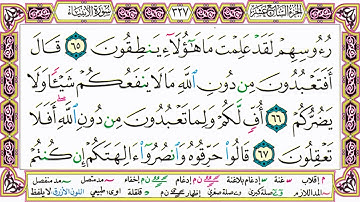 الجزء السابع عشر ٣٢٧ سورة الأنبياء
رُءُوسِهِمْ لَقَدْ عَلِمْتَ مَا هَٰٓؤُلَآءِ يَنطِقُونَ ٦٥ قَالَ
أَفَتَعْبُدُونَ مِن دُونِ ٱللَّهِ مَا لَا يَنفَعُكُمْ شَيْـًٔا وَلَا
يَضُرُّكُمْ ٦٦ أُفٍّ لَّكُمْ وَلِمَا تَعْبُدُونَ مِن دُونِ ٱللَّهِ أَفَلَا
تَعْقِلُونَ ٦٧ قَالُوا۟ حَرِّقُوهُ وَٱنصُرُوٓا۟ ءَالِهَتَكُمْ إِن كُنتُمْ